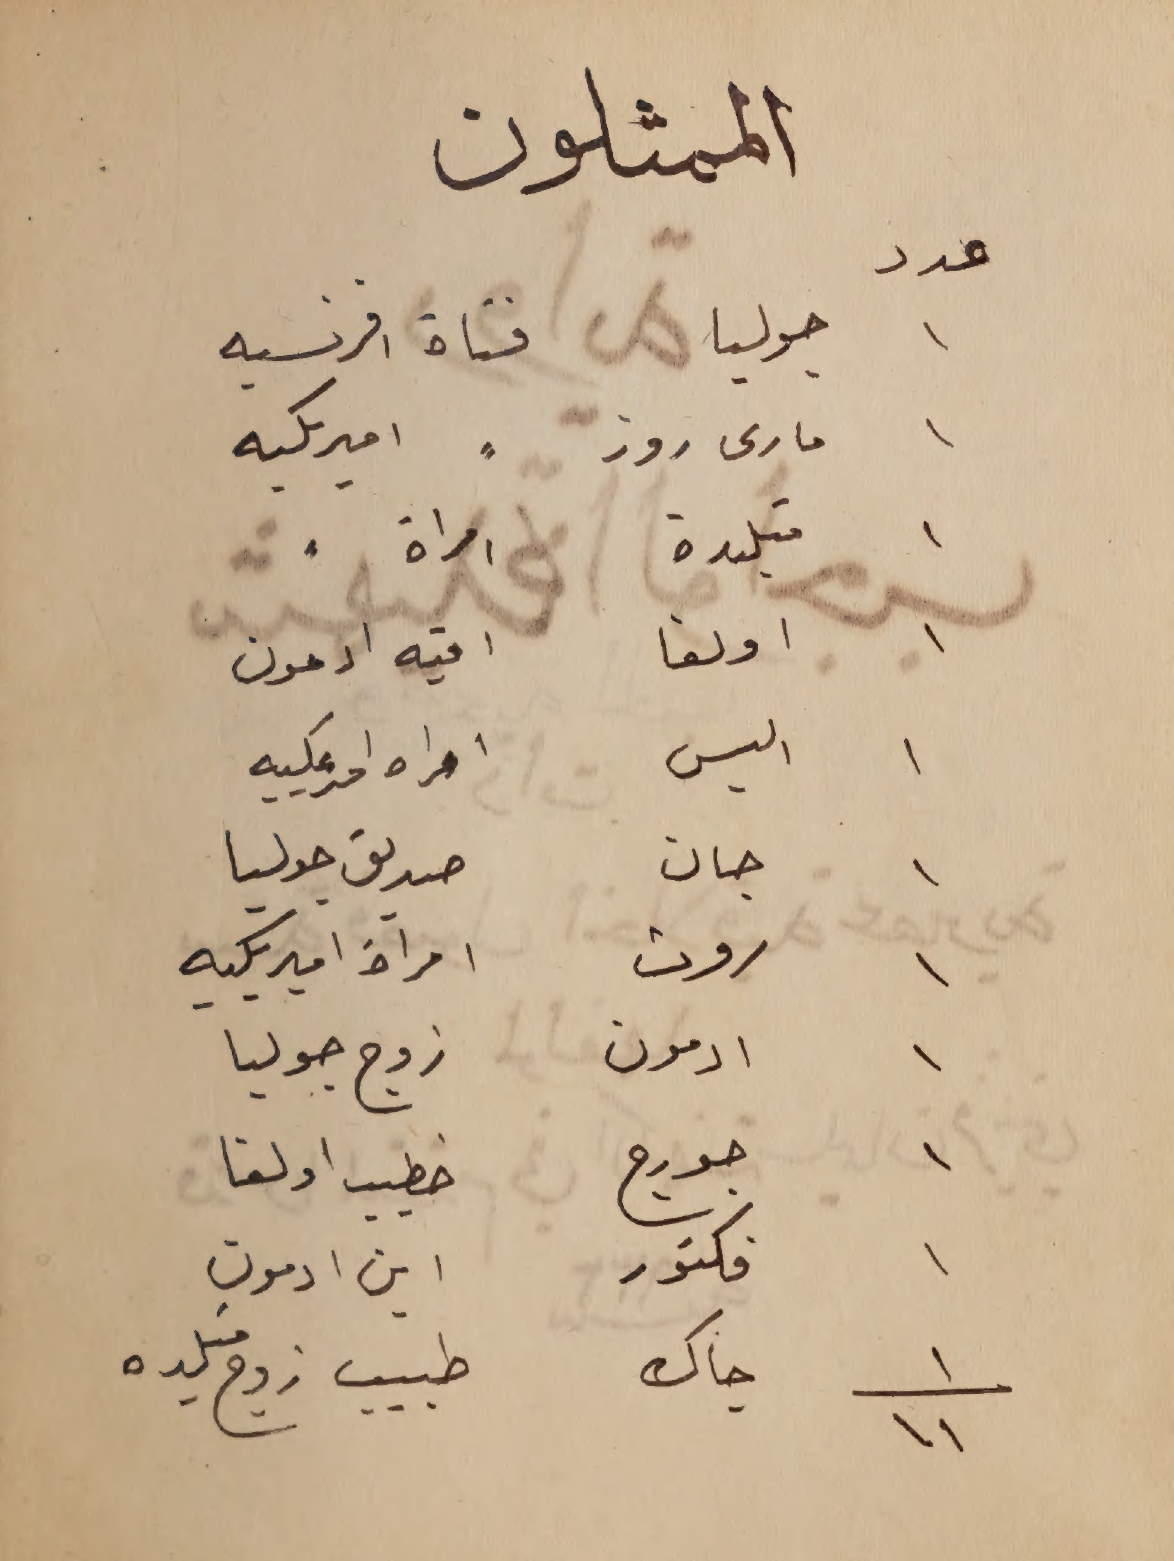 الممثلون
عدد
١ جوليا فتاة افرنسيه
١ مارى روز " اميريكيه
١ متيلدة امراة "
١ اولغا ابنة ادمون
١ اليس امراه اميريكييه
١ جان صديق جوليا
١ روث امراة اميريكييه
١ ادمون زوج جوليا
١ جورج خطيب اولغا
١ فكتور ابن ادمون
١ جاك طبيب زوج متيلده
١١